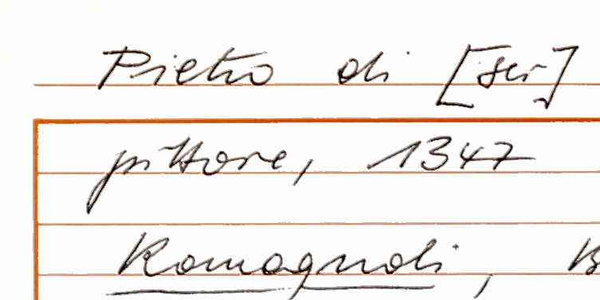 Pietro di [ser]
pittore, 1347
Romagnoli, B